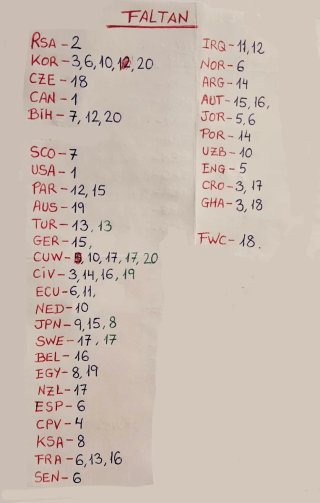 FALTAN
RSA - 2
KOR - 3,6,10,12,20
CZE - 18
CAN - 1
BIH - 7, 12,20
SCO - 7
USA - 1
PAR - 12, 15
AUS - 19
TUR - 13, 13
GER - 15,
CUW - 5, 10, 17, 17, 20
CIV - 3,14,16, 19
ECU - 6,11,
NED - 10
JPN - 9,15, 8
SWE - 17, 17
BEL - 16
EGY - 8,19
NZL - 17
ESP - 6
CPV - 4
KSA - 8
FRA - 6,13,16
SEN - 6
IRQ - 11,12
NOR - 6
ARG - 14
AUT - 15,16,
JOR - 5,6
POR - 14
UZB - 10
ENG - 5
CRO - 3, 17
GHA - 3,18
FWC - 18.